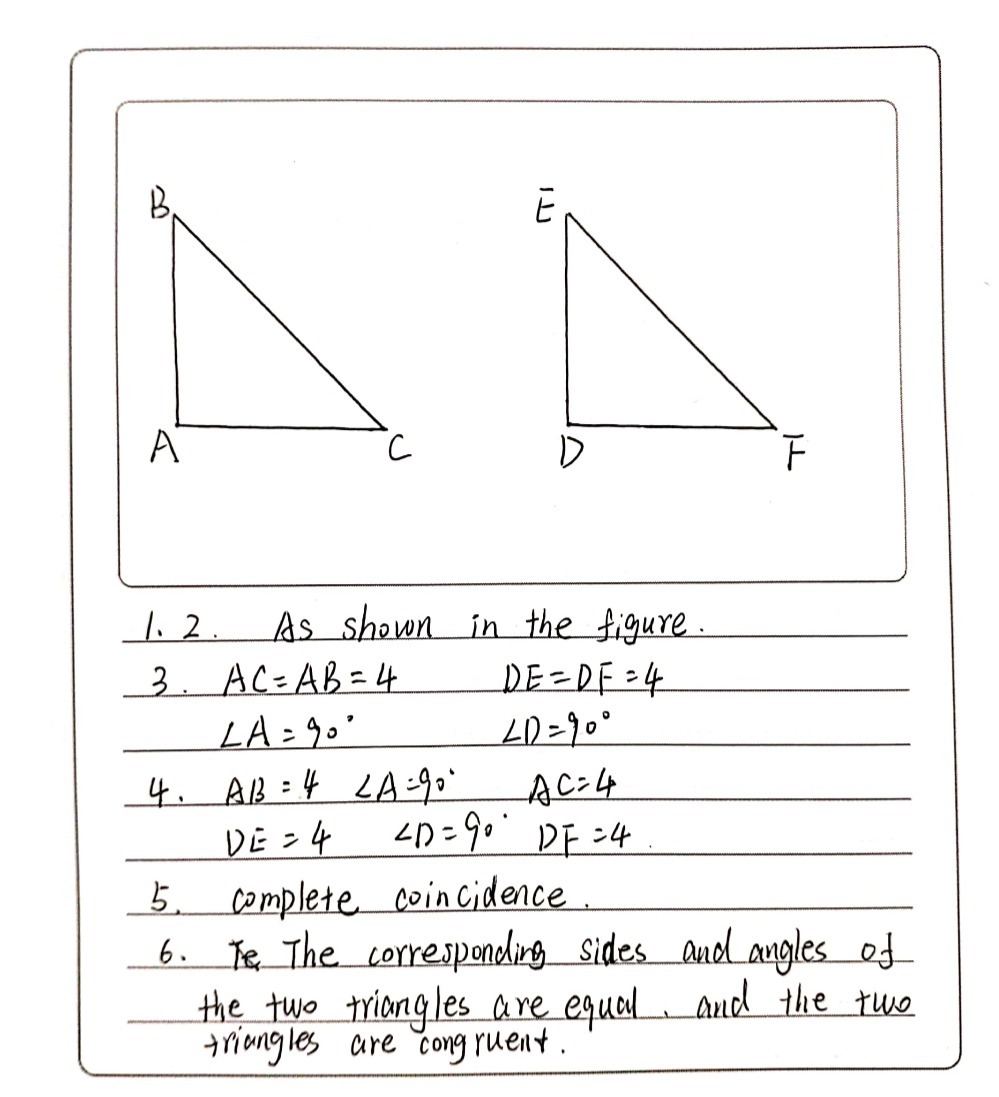 B
E
A
C
D
F
1. 2. As shown in the figure.
3. AC=AB=4 DE=DF=4
∠A=90° ∠D=90°
4. AB=4 ∠A=90° AC=4
DE=4 ∠D=90° DF=4.
5. complete coincidence.
6. The corresponding sides and angles of
the two triangles are equal. and the two
triangles are congruent.